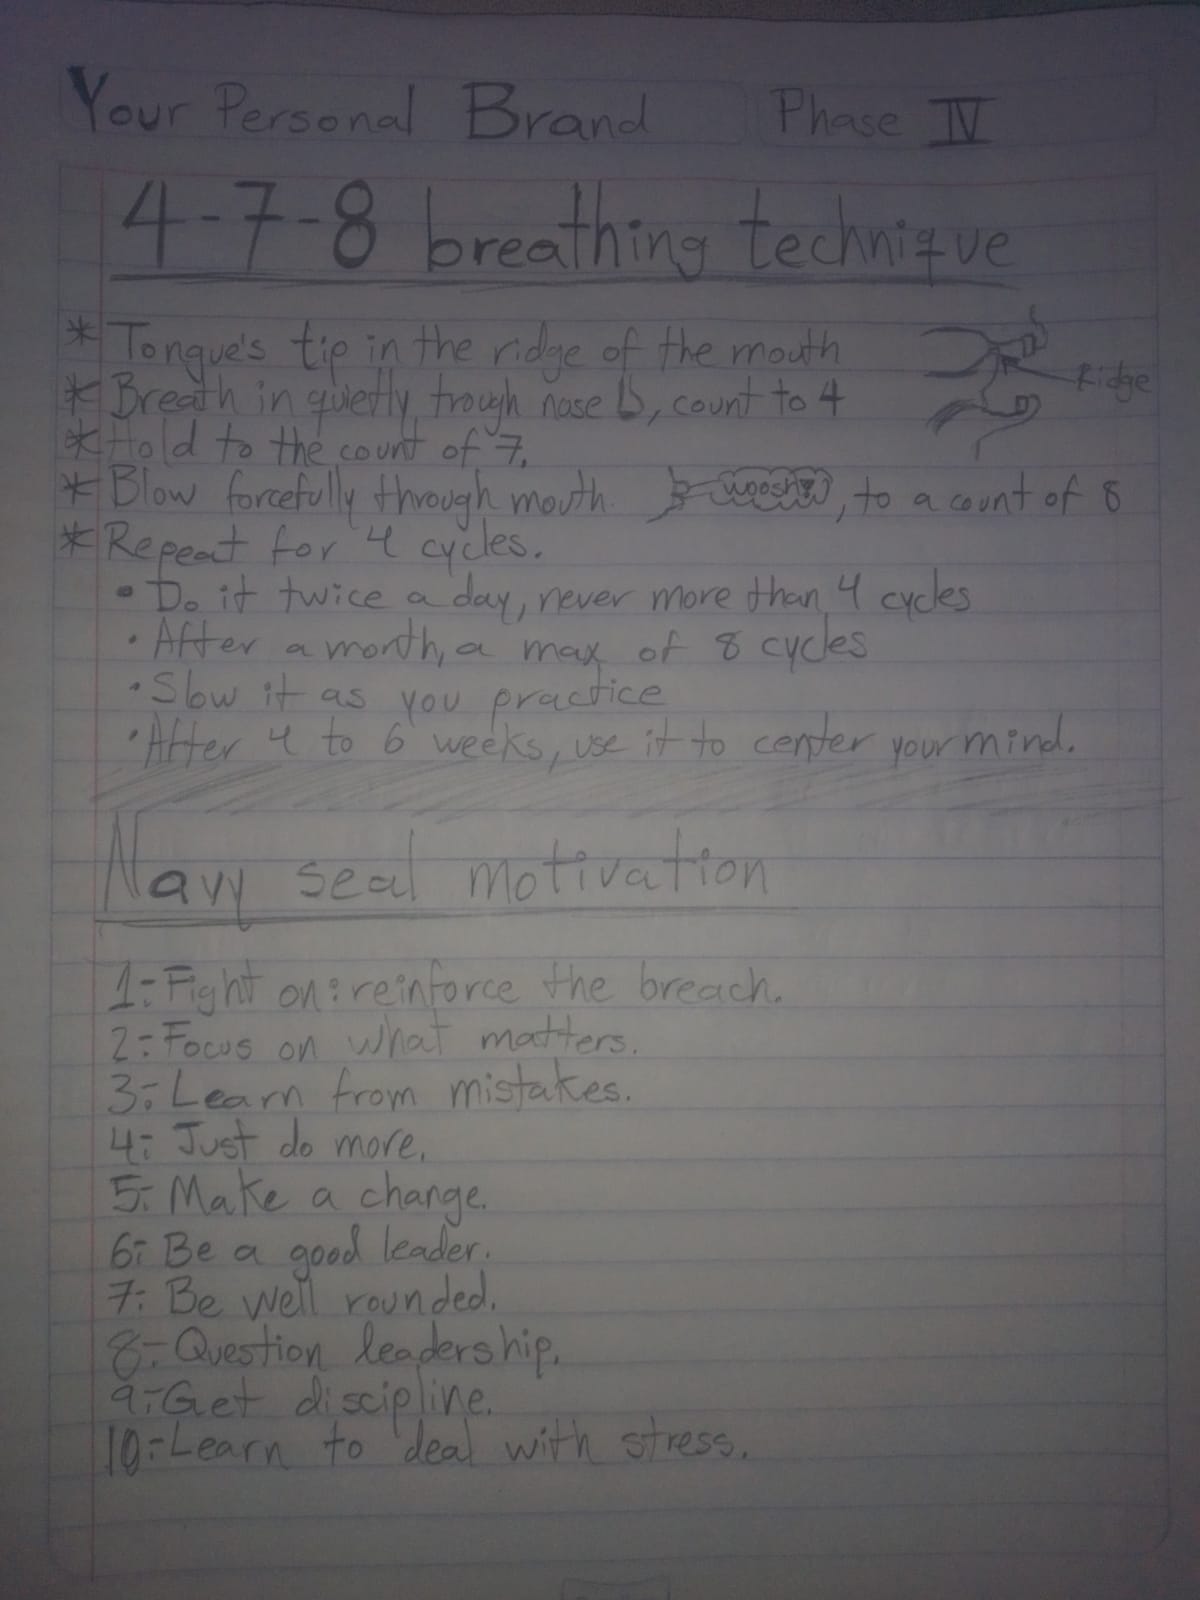 Your Personal Brand Phase IV
4-7-8 breathing technique
* Tongue's tip in the ridge of the mouth
Ridge
* Breath in quietly trough nose, count to 4
* Hold to the count of 7.
* Blow forcefully through mouth. woosh, to a count of 8
* Repeat for 4 cycles.
• Do it twice a day, never more than 4 cycles
• After a month, a max of 8 cycles
• Slow it as you practice
• After 4 to 6 weeks, use it to center your mind.
Navy seal motivation
1:- Fight on: reinforce the breach.
2:- Focus on what matters.
3:- Learn from mistakes.
4:- Just do more.
5:- Make a change.
6:- Be a good leader.
7:- Be well rounded.
8:- Question leadership.
9:- Get discipline.
10:- Learn to deal with stress.